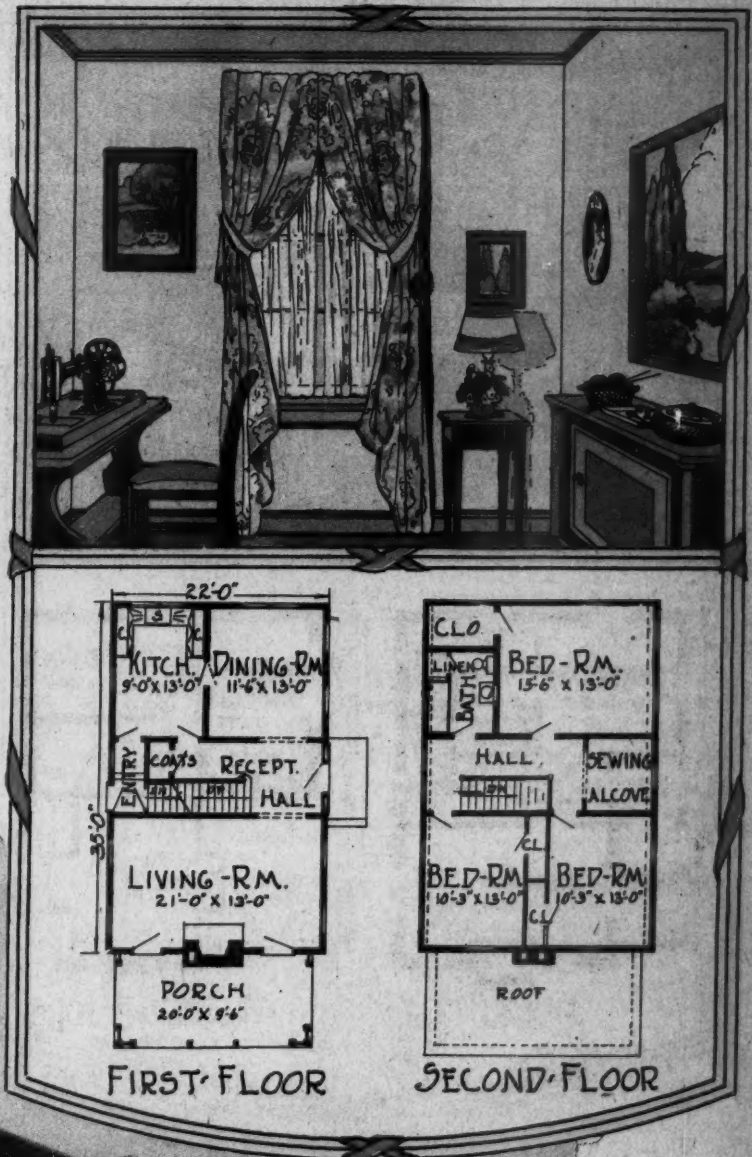 22'-0"
S
C
C
KITCH.
9'-0" X 13'-0"
DINING-RM
11'-6" X 13'-0"
ENTRY
COATS
RECEPT.
HALL
DN
UP
35'-0"
LIVING-RM.
21'-0" X 13'-0"
PORCH
20'-0" X 9'-6"
FIRST-FLOOR
CLO
LINEN
BATH
BED-RM.
15'-6" X 13'-0"
HALL
SEWING
ALCOVE
DN
CL.
BED-RM
10'-3" X 13'-0"
BED-RM
10'-3" X 13'-0"
CL
ROOF
SECOND-FLOOR